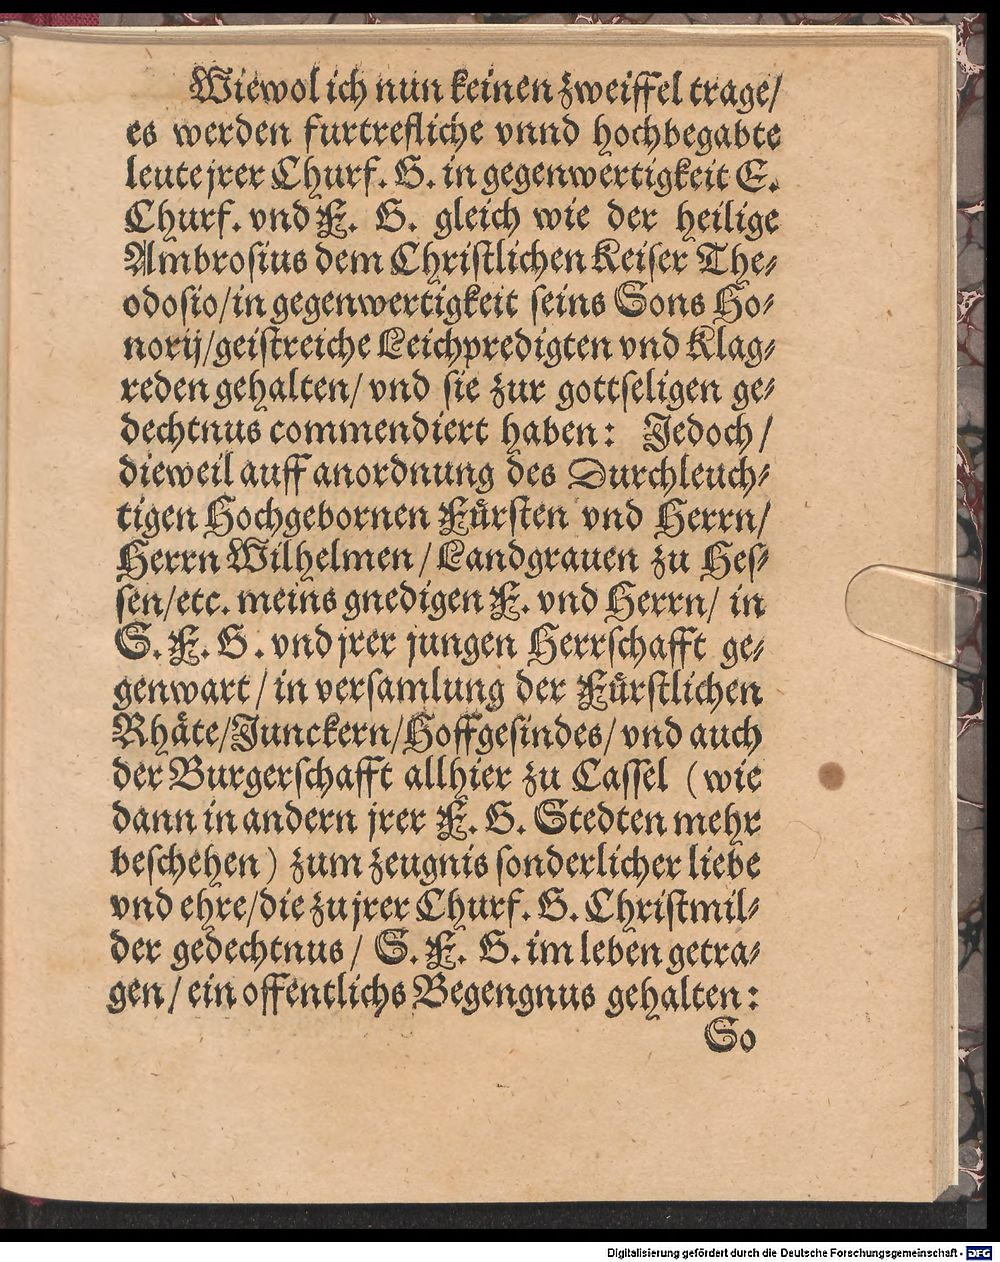 Wiewol ich nun keinen zweiffel trage/
es werden furtrefliche vnnd hochbegabte
leute jrer Churf. G. in gegenwertigkeit E.
Churf. vnd F. G. gleich wie der heilige
Ambrosius dem Christlichen Keiser The⸗
odosio/in gegenwertigkeit seins Sons Ho⸗
norij/geistreiche Leichpredigten vnd Klag⸗
reden gehalten/ vnd sie zur gottseligen ge⸗
dechtnus commendiert haben: Jedoch/
dieweil auff anordnung des Durchleuch⸗
tigen Hochgebornen Fuͤrsten vnd Herrn/
Herrn Wilhelmen/Landgrauen zu Hes⸗
sen/etc. meins gnedigen F. vnd Herrn/ in
S. F. G. vnd jrer jungen Herrschafft ge⸗
genwart/in versamlung der Fuͤrstlichen
Rhaͤte/Junckern/Hoffgesindes/ vnd auch
der Burgerschafft allhier zu Cassel (wie
dann in andern jrer F. G. Stedten mehr
beschehen) zum zeugnis sonderlicher liebe
vnd ehre/die zu jrer Churf. G. Christmil⸗
der gedechtnus/ S. F. G. im leben getra⸗
gen/ein offentlichs Begengnus gehalten:
So
Digitalisierung gefördert durch die Deutsche Forschungsgemeinschaft - DFG